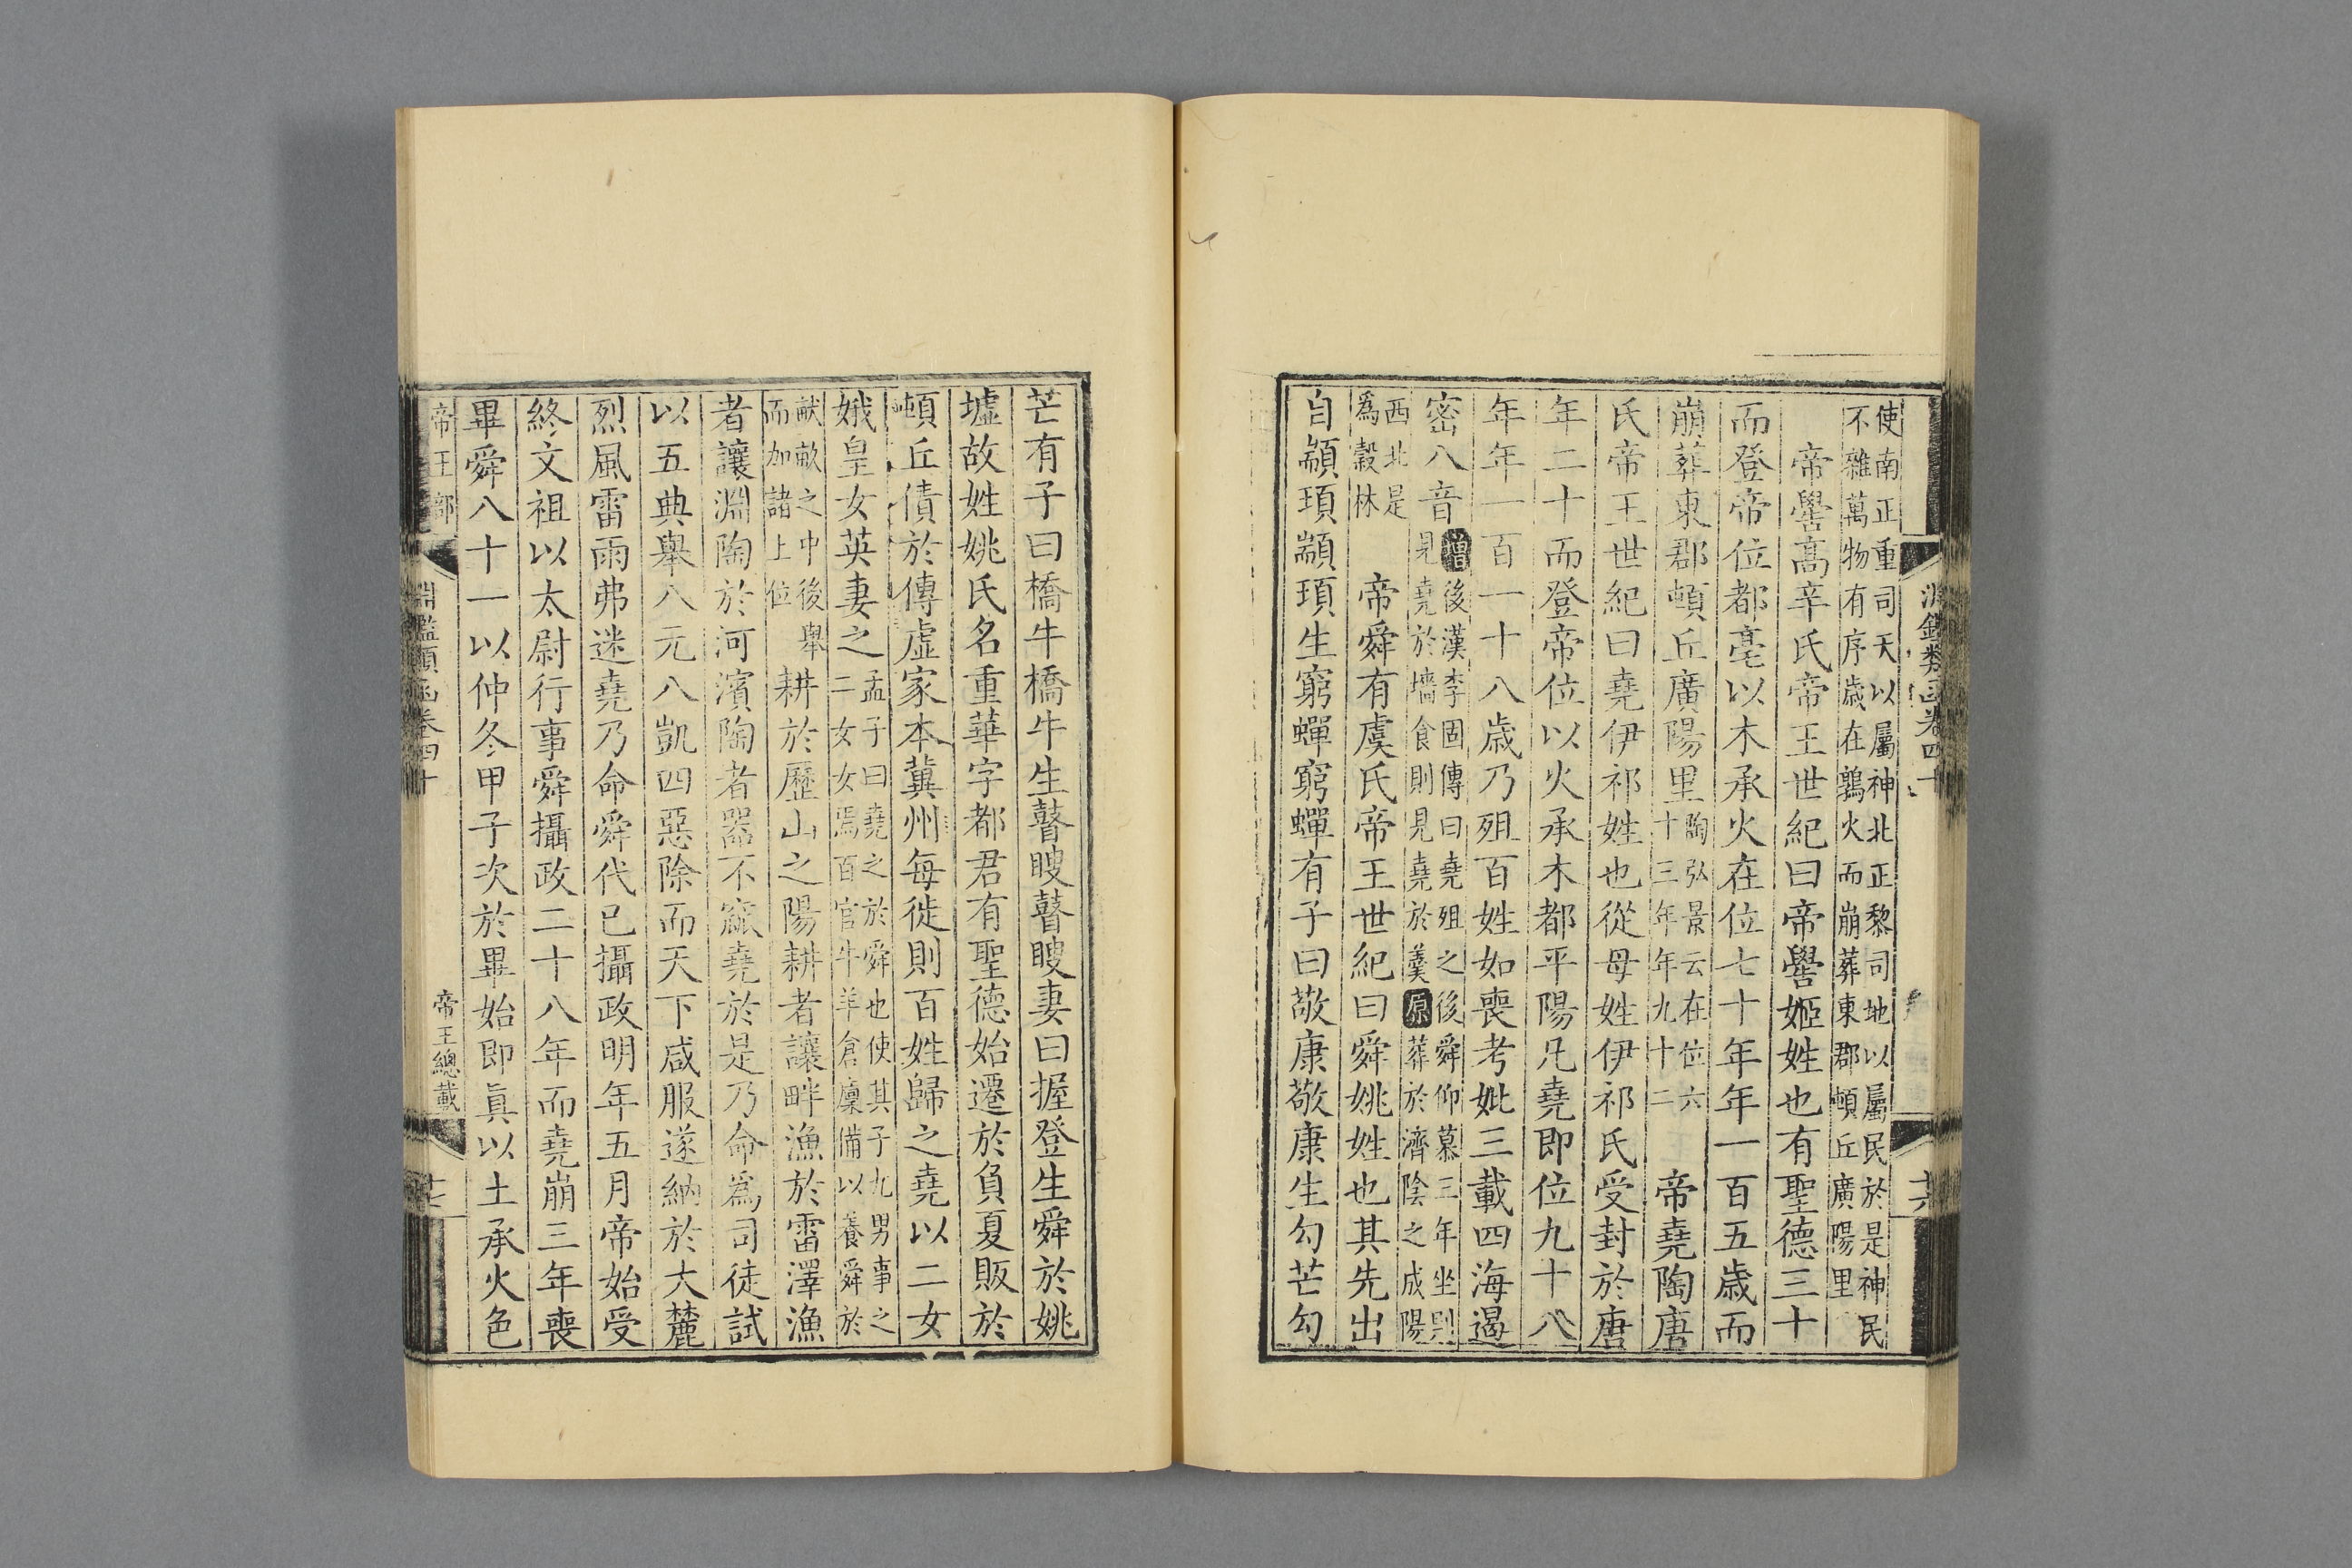 淵鑑類函卷四十
十六
使南正重司天以屬神北正黎司地以屬民於是神民
不雜萬物有序歲在鶉火而崩葬東郡頓丘廣陽里
帝嚳高辛氏帝王世紀曰帝嚳姬姓也有聖德三十
而登帝位都亳以木承火在位七十年年一百五歲而
崩葬東郡頓丘廣陽里陶弘景云在位六十三年年九十二帝堯陶唐
氏帝王世紀曰堯伊祁姓也從母姓伊祁氏受封於唐
年二十而登帝位以火承木都平陽凡堯即位九十八
年年一百一十八歲乃殂百姓如喪考妣三載四海遏
密八音增後漢李固傳曰堯殂之後舜仰慕三年坐則見堯於墻食則見堯於羹原葬於濟陰之成陽
西北是為穀林帝舜有虞氏帝王世紀曰舜姚姓也其先出
自顓頊顓頊生窮蟬窮蟬有子曰敬康敬康生勾芒勾
芒有子曰橋牛橋牛生瞽瞍瞽瞍妻曰握登生舜於姚
墟故姓姚氏名重華字都君有聖德始遷於負夏販於
頓丘債於傳虛家本冀州每徙則百姓歸之堯以二女
娥皇女英妻之孟子曰堯之於舜也使其子九男事之二女女焉百官牛羊倉廩備以養舜於
畎畝之中後舉而加諸上位耕於歷山之陽耕者讓畔漁於雷澤漁
者讓淵陶於河濱陶者器不窳堯於是乃命為司徒試
以五典舉八元八凱四惡除而天下咸服遂納於大麓
烈風雷雨弗迷堯乃命舜代已攝政明年五月帝始受
終文祖以太尉行事舜攝政二十八年而堯崩三年喪
畢舜八十一以仲冬甲子次於畢始即真以土承火色
帝王部
淵鑑類函卷四十
帝王總載